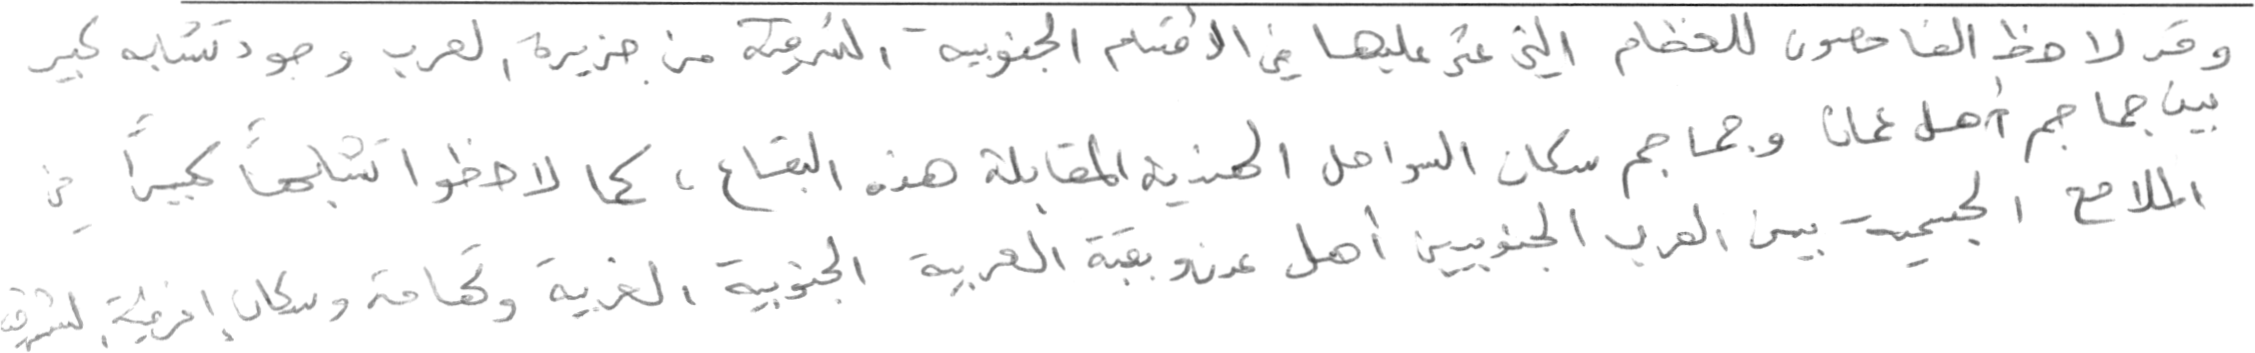 وقد لاحظ الفاحصون للعظام التي عثر عليها في الأقسام الجنوبية الشرقية من جزيرة العرب وجود تشابه كبير
بين جماجم أهل عمان وجماجم سكان السواحل الهندية المقابلة هذه البقاع، كما لاحظوا تشابهاً كبيراً في
الملامح الجسمية بين العرب الجنوبيين أهل عدن وبقية العربية الجنوبية الغربية وتهامة وسكان إفريقية الشرقية